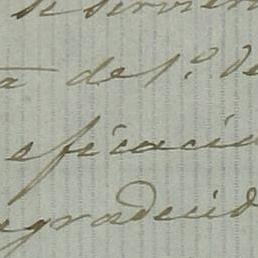 se servier
a de 1.º de
eficacia
agradecid